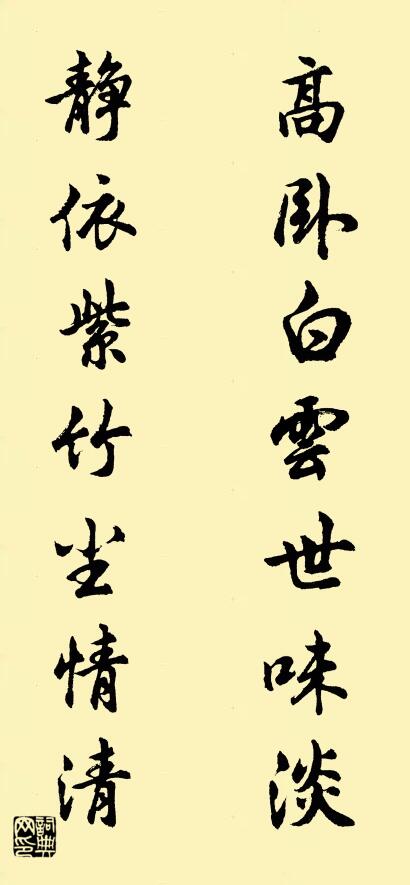 高卧白雲世味淡
静依紫竹尘情清
詞典網印